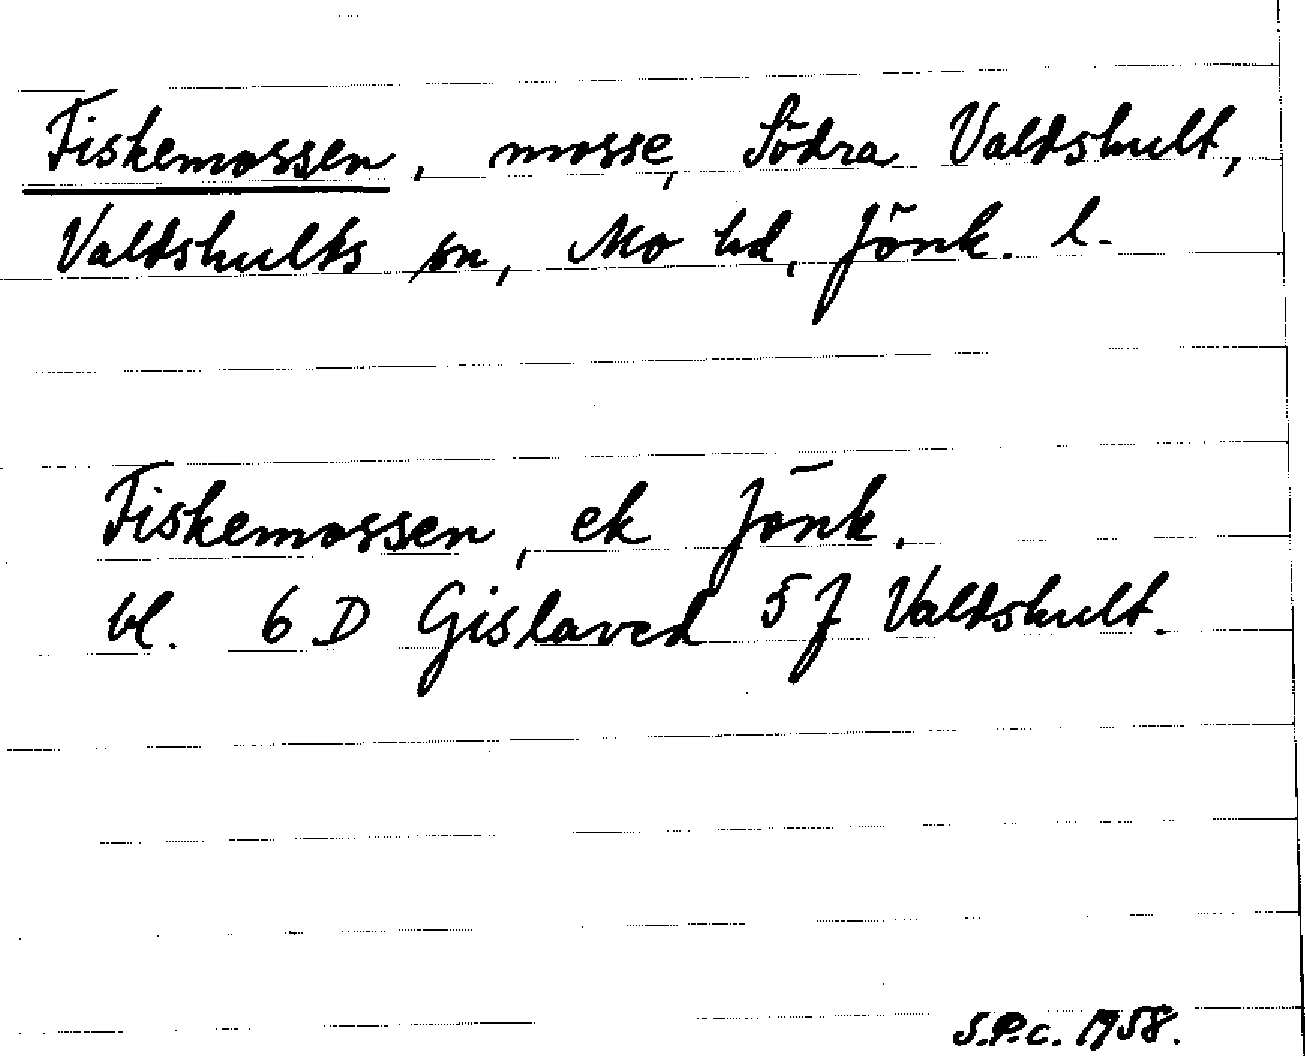 Fiskemossen, mosse, Södra Valdshult,
Valdshults sn, Mo hd, Jönk. l.
Fiskemossen, ek Jönk.
bl. 6 D Gislaved 5 J Valdshult.
S.P.c. 1958.